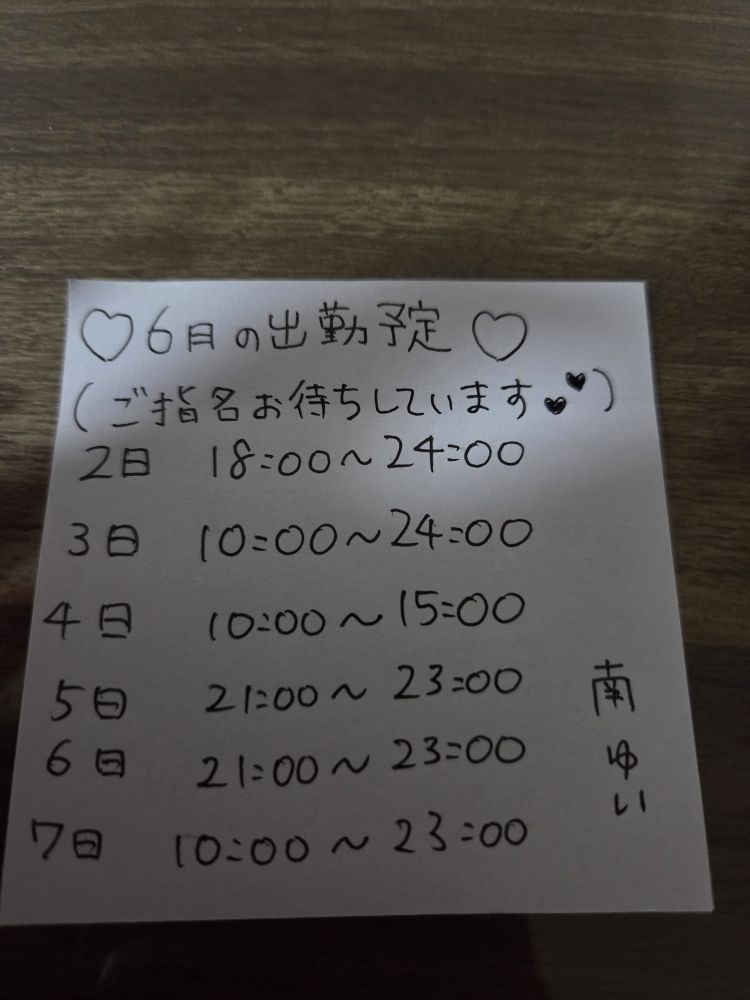 ♡6月の出勤予定♡
(ご指名お待ちしています♥♥)
2日 18:00~24:00
3日 10:00~24:00
4日 10:00~15:00
5日 21:00~23:00
6日 21:00~23:00
7日 10:00~23:00
南ゆい